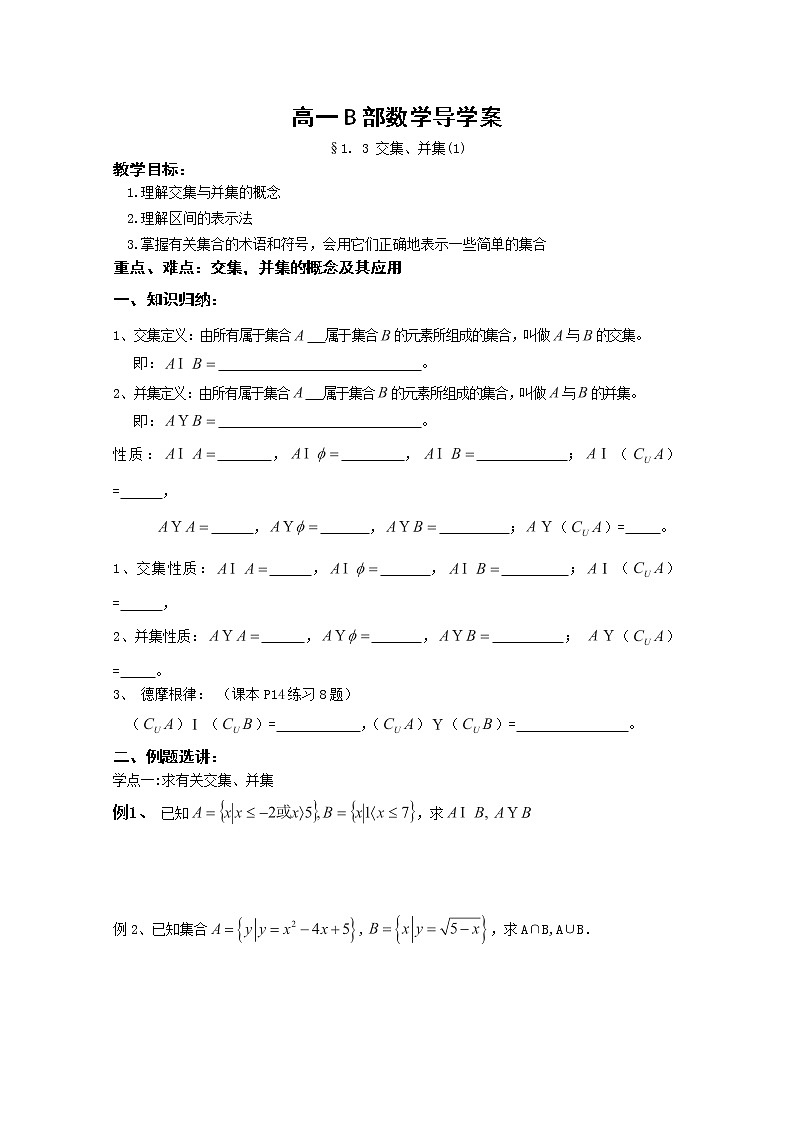 高一 B 部数学导学案
§1. 3 交集、并集(1)
教学目标：
1.理解交集与并集的概念
2.理解区间的表示法
3.掌握有关集合的术语和符号，会用它们正确地表示一些简单的集合
重点、难点：交集，并集的概念及其应用
一、知识归纳：
1、交集定义：由所有属于集合 A ___属于集合 B 的元素所组成的集合，叫做 A 与 B 的交集。
即：A I B =_____________________________。
2、并集定义：由所有属于集合 A ___属于集合 B 的元素所组成的集合，叫做 A 与 B 的并集。
即：A Y B =_____________________________。
性质：A I A =________，A I ϕ =_________，A I B =_____________；A I （C_U A）
=______，
A Y A =______，A Y ϕ =_______，A Y B =__________；A Y（C_U A）=_____。
1、交集性质：A I A =______，A I ϕ =_______，A I B =__________；A I （C_U A）
=______，
2、并集性质：A Y A =______，A Y ϕ =_______，A Y B =__________； A Y（C_U A）
=_____。
3、 德摩根律： （课本 P14 练习 8 题）
（C_U A）I （C_U B）=____________,（C_U A）Y（C_U B）=________________。
二、例题选讲：
学点一:求有关交集、并集
例1、 已知 A = {x|x ≤ −2或x⟩5}, B = {x|1⟨x ≤ 7}，求 A I B, A Y B
例 2、已知集合 A = {y|y = x² − 4x + 5}，B = {x|y = √(5−x)}，求 A∩B,A∪B.